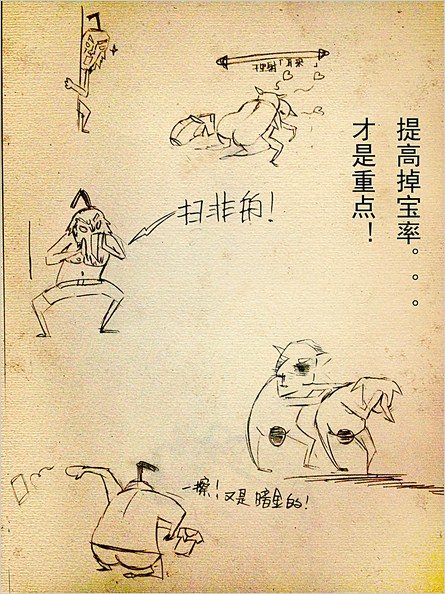 提高掉宝率。。。
才是重点！
扫非的！
一擦！又是暗金的！